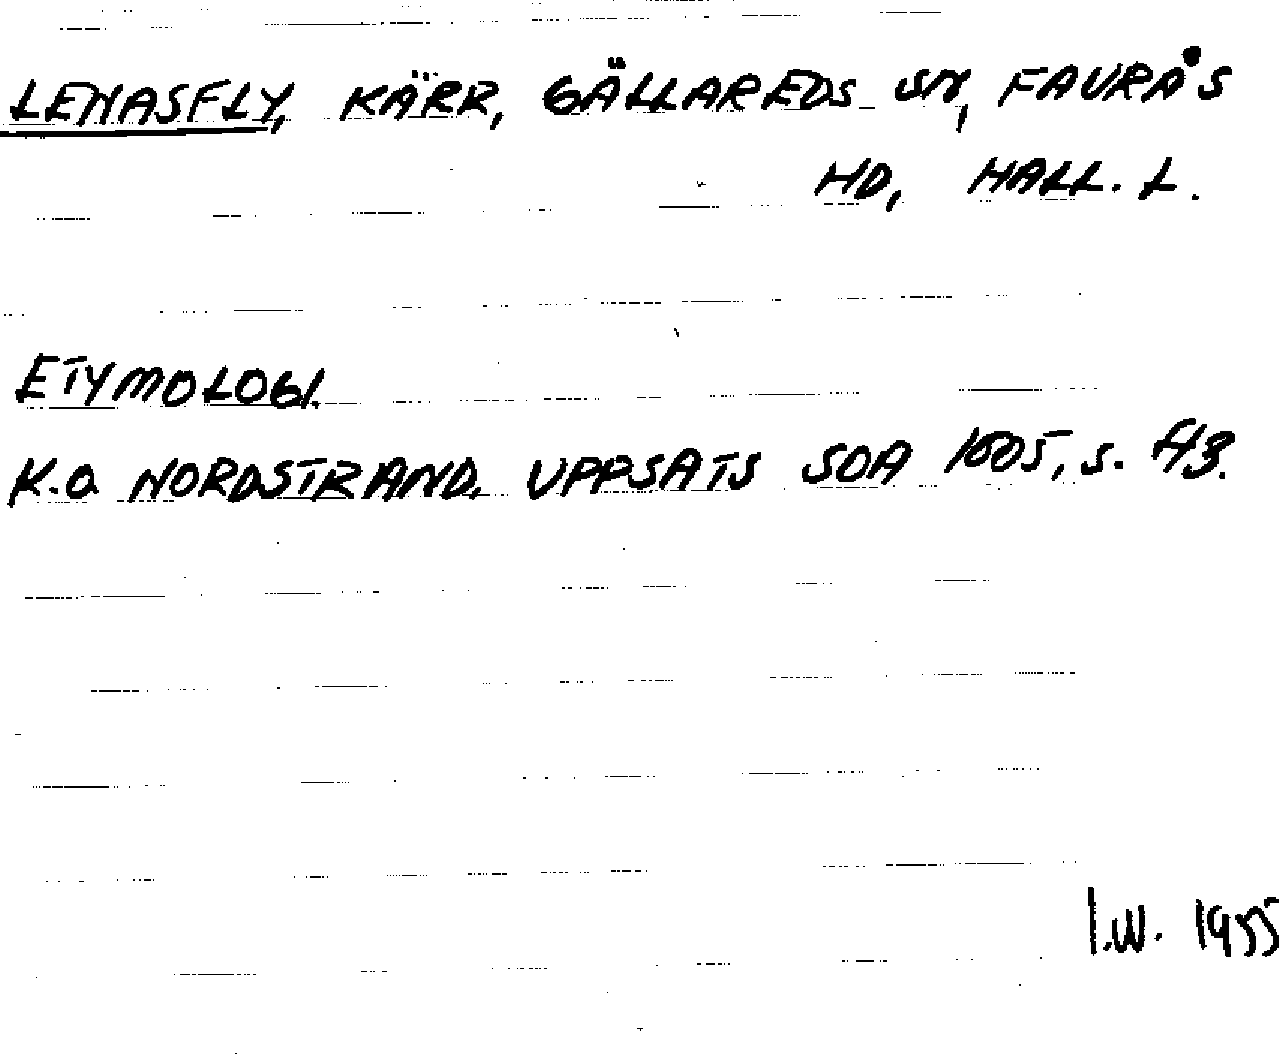 LENASFLY, KÄRR, GÄLLAREDS SN, FAURÅS
HD, HALL. L.
ETYMOLOGI.
K.O. NORDSTRAND. UPPSATS SOA 1605, s. 43.
I.W. 1955